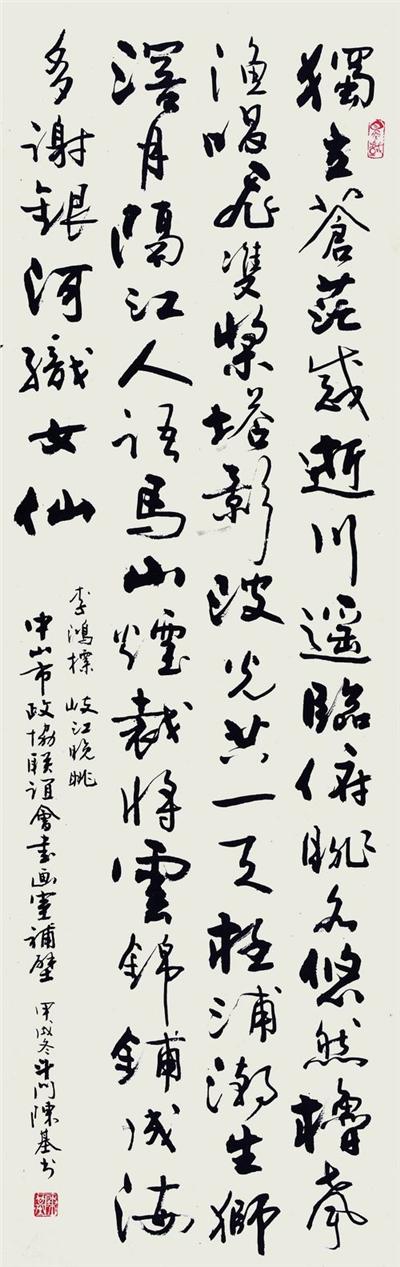 獨立蒼茫感逝川遥臨俯眺各悠然櫓聲
漁唱飛雙槳塔影波光共一天極浦潮生獅
滘月隔江人語馬山煙裁將雲錦鋪成海
多謝銀河織女仙
李鴻標 岐江晚眺
中山市政協联誼會書画室補壁 甲戌冬斗門陳基书